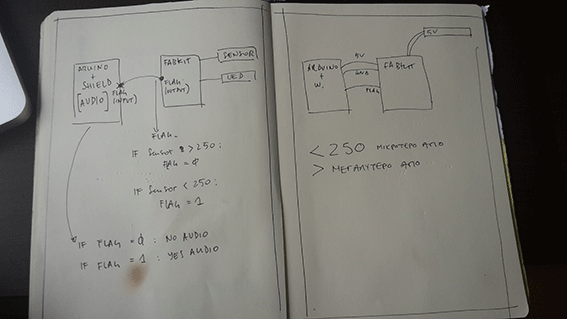 ARDUINO
+
SHIELD
[AUDIO]
FLAG
(INPUT)
FABKIT
FLAG
(OUTPUT)
SENSOR
LED
FLAG
IF SENSOR > 250:
FLAG = 0
IF SENSOR < 250:
FLAG = 1
IF FLAG = 0 : NO AUDIO
IF FLAG = 1 : YES AUDIO
ARDUINO
+
W.
5V
GND
FLAG
FABKIT
5V
< 250 ΜΙΚΡΟΤΕΡΟ ΑΠΟ
> ΜΕΓΑΛΥΤΕΡΟ ΑΠΟ